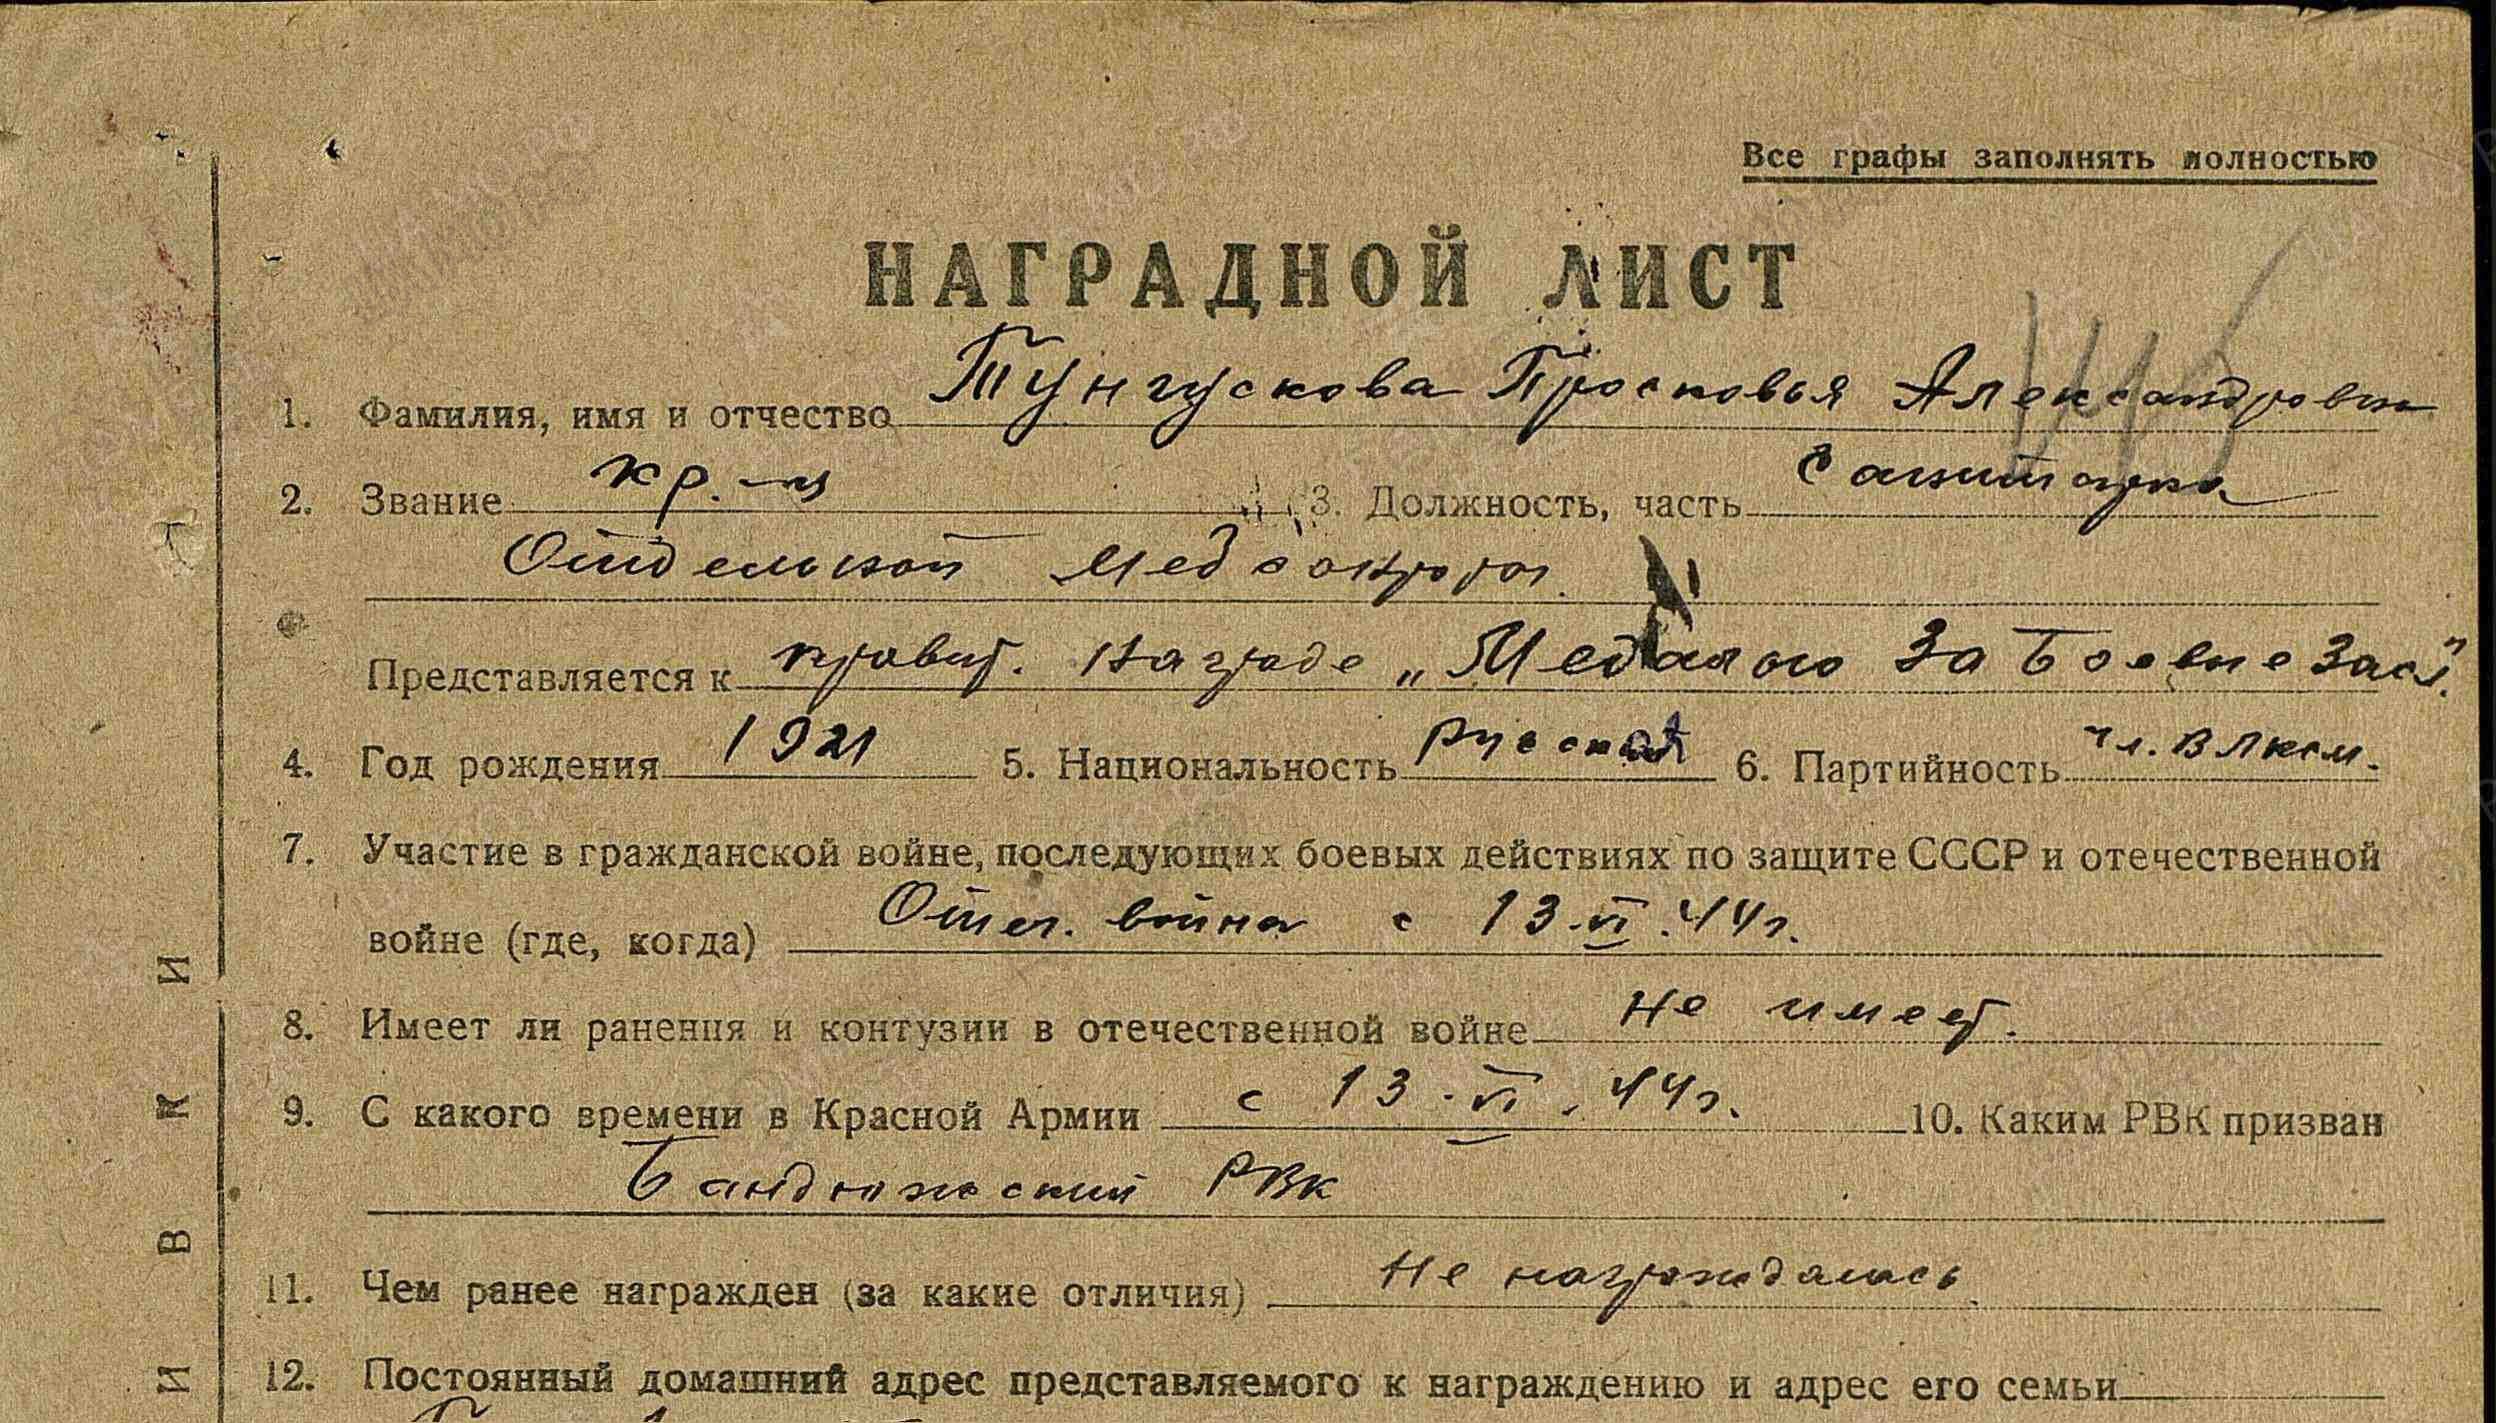 Все графы заполнять полностью
НАГРАДНОЙ ЛИСТ
1. Фамилия, имя и отчество Тунгускова Просковья Александровна
2. Звание кр.-ц 3. Должность, часть санитарка
Отдельной Медсанроты.
Представляется к правит. награде „Медалью За Боевые Засл."
4. Год рождения 1921 5. Национальность русская 6. Партийность чл. ВЛКСМ.
7. Участие в гражданской войне, последующих боевых действиях по защите СССР и отечественной
войне (где, когда) Отеч. война с 13.VI.44г.
8. Имеет ли ранения и контузии в отечественной войне Не имеет.
9. С какого времени в Красной Армии с 13.VI.44г. 10. Каким РВК призван
Бандюжский РВК
11. Чем ранее награжден (за какие отличия) Не награждалась
12. Постоянный домашний адрес представляемого к награждению и адрес его семьи
И В К И